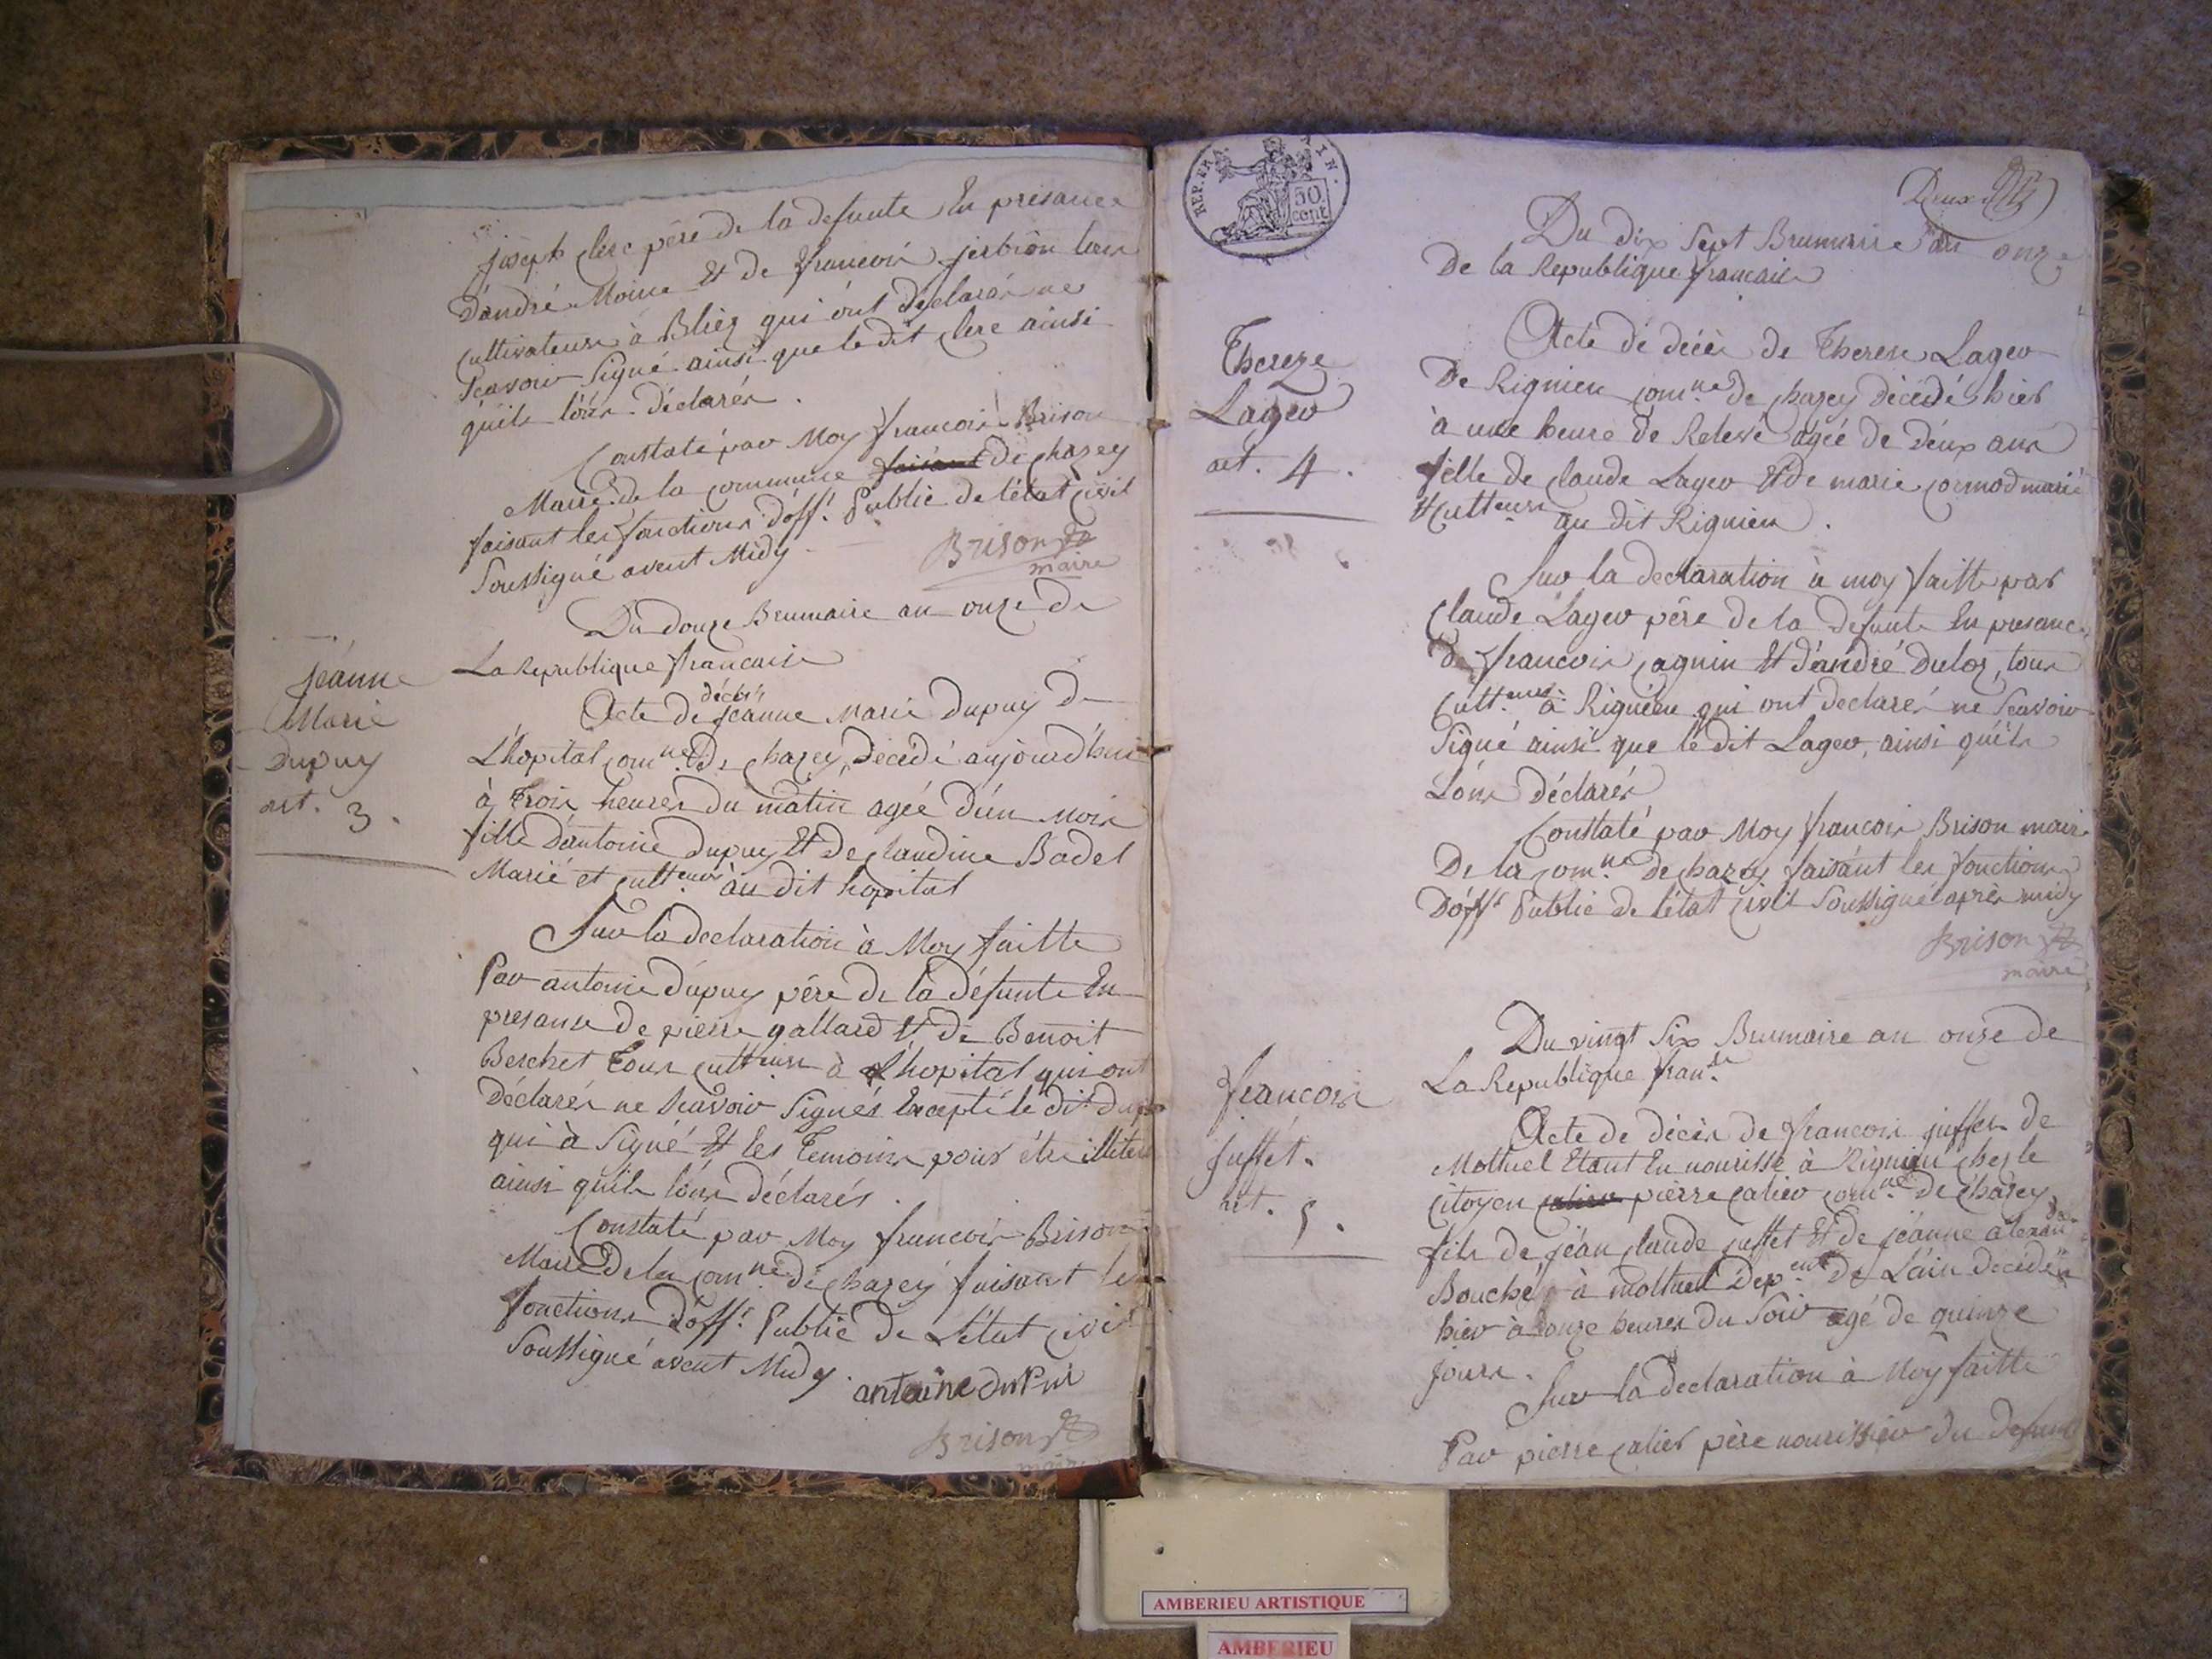 joseph clerc père de la defunte En présance
D'andré Moine Et de francois jerbion tous
cultivateurs à Bliez qui ónt déclarés ne
scavoir signé ainsi que le dit clerc ainsi
qu'ils lóns déclarés.
Constaté par Moy francois Brison
Maire de la commune de chazey
faisant les fonctions d'off.r Public de l'état civil
soussigné avent Midy
Brison
maire
Du douze Brumaire an onze de
La Republique francaise
jéanne
Marie
Dupuy
art. 3.
Acte de décès jéanne Marie Dupuy de
L'hopital com.ne de chazey, décédé aujourd'hui
à trois heures du matin agée d'un mois
fille d'antoine Dupuy Et de claudine Badel
Marié et cult.eurs au dit hopital
Sur la declaration à Moy faitte
Par antoine Dupuy père de la défunte En
presance de pierre gallard Et de Benoit
Berchet tous cult.eurs à L'hopital qui ont
Déclarés ne scavoir signés Excepté le dit
qui à signé Et les temoins pour étre
ainsi qu'ils lóns déclarés.
Constaté par Moy francois Brison
Maire de la com.ne de chazey faisant les
fonctions d'off.r Public de L'état civil
Soussigné avent Midy.
antoine duPui
Brison
maire
REP. FRA.
50
cent
Deux
Du dix sept Brumaire an onze
De la Republique francaise
Thereze
Lager
art. 4.
Acte de décès de Therese Lager
De Rignieu com.ne de chazey décédé hier
à une heure de Relevé agée de déux ans
fille de claude Lager Et de marie cormod marié
Et cult.eurs au dit Rignieu.
Sur la declaration à moy faitte par
Claude Lager père de la defunte En presance
de francois cagnin Et d'andré Duloz, tous
Cult.eurs à Rignieu qui ont declarés ne scavoir
signé ainsi que le dit Lager, ainsi qu'ils
Lóns Déclarés
Constaté par Moy francois Brison maire
De la com.ne de chazey faisant les fonctions
D'off.r Public de l'état civil soussigné après midy
Brison
maire
Du vingt six Brumaire an onze de
La Republique fran.se
francois
juffet.
art. 5.
Acte de décès de francois juffet de
Moltuel Etant En nourisse à Rignieu chez le
Citoyen pierre calier com.ne de chazey
fils de jéan claude juffet Et de jéanne
Bouche à moltuel Dep.ent de L'ain décédé
hier à onze heures du soir agé de quinze
jours.
Sur la declaration à Moy faitte
Par pierre calier père nourissier du defunt
AMBERIEU ARTISTIQUE
AMBERIEU